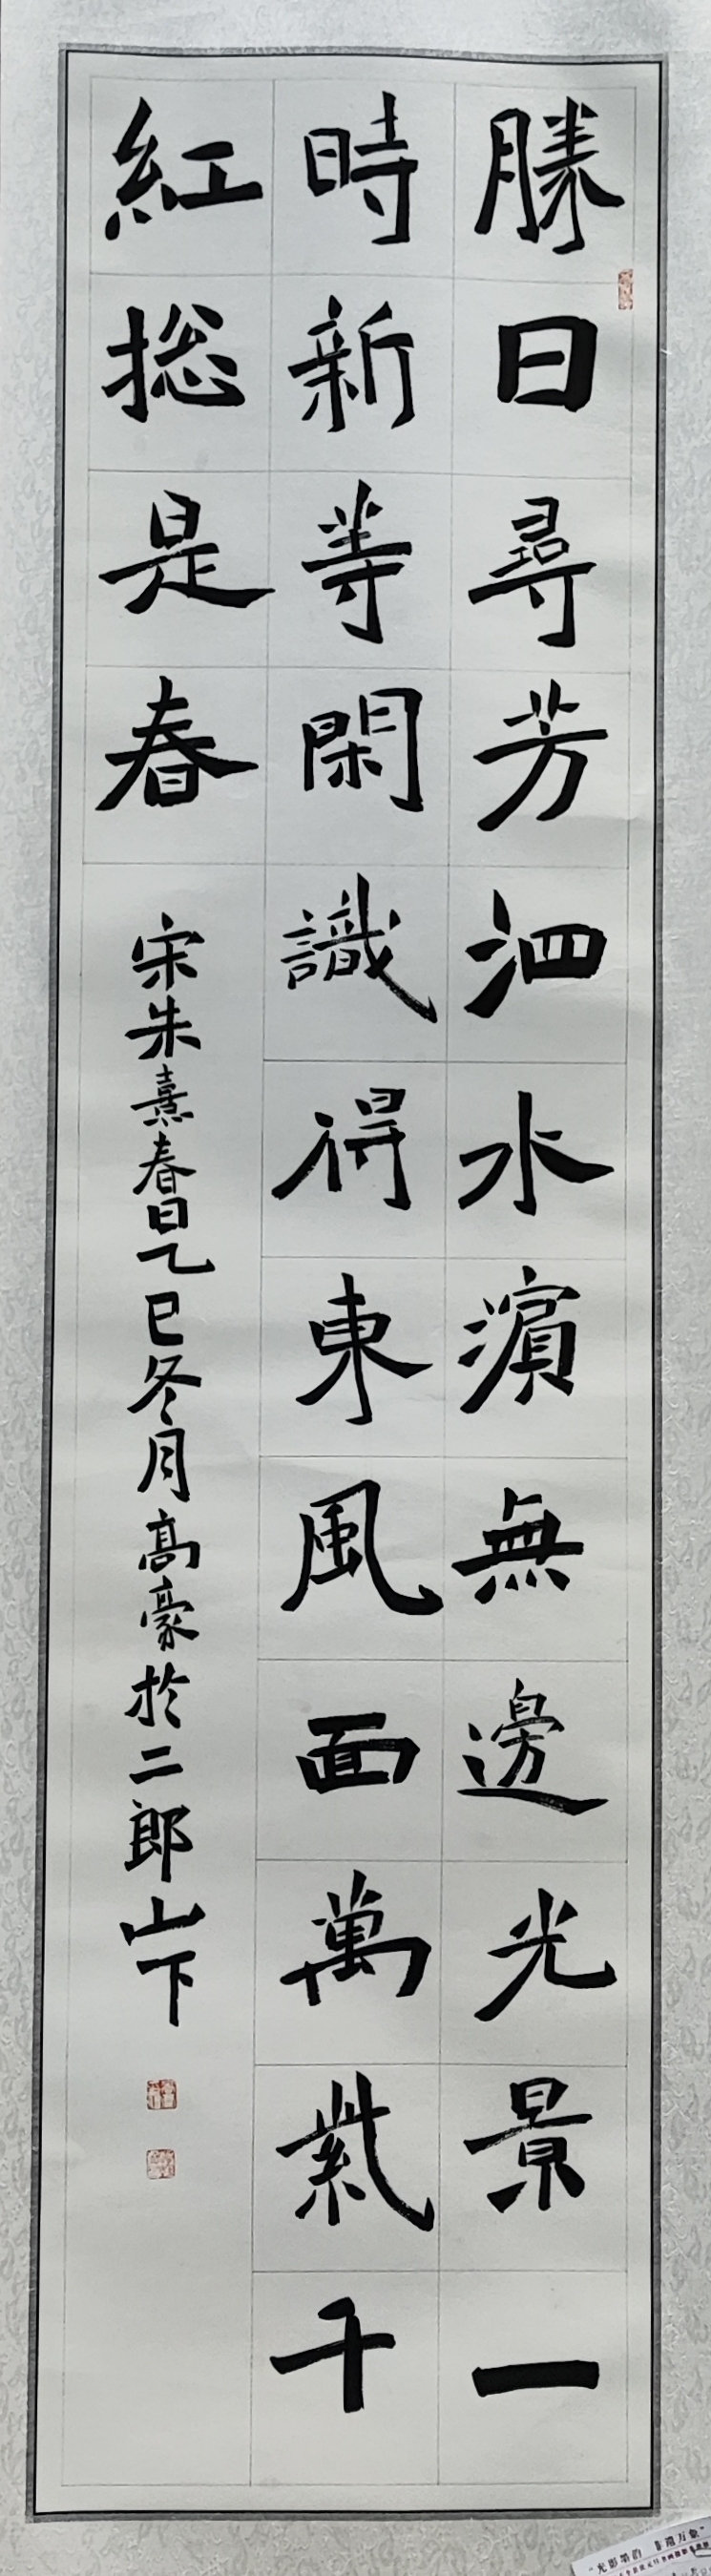 勝日尋芳泗水濵無邊光景一
時新等閑識得東風面萬紫千
紅捴是春
宋朱熹春日乙巳冬月高豪於二郎山下